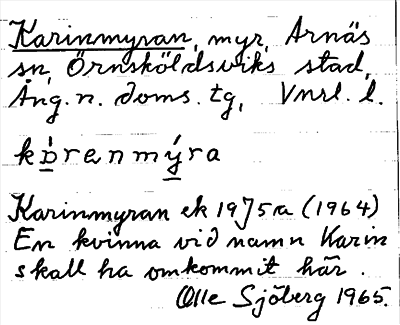 Karinmyran, myr, Arnäs
sn, Örnsköldsviks stad,
Ång. n. doms. tg, Vnrl. l.
kårenmýra
Karinmyran ek 19J5a (1964)
En kvinna vid namn Karin
skall ha omkommit här.
Olle Sjöberg 1965.